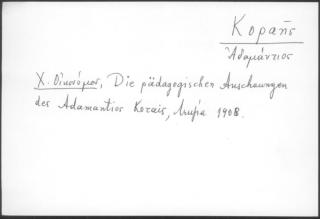 Κοραῆς
Ἀδαμάντιος
Χ. Οἰκονόμος, Die pädagogischen Anschauungen
des Adamantios Korais, Λειψία 1908.